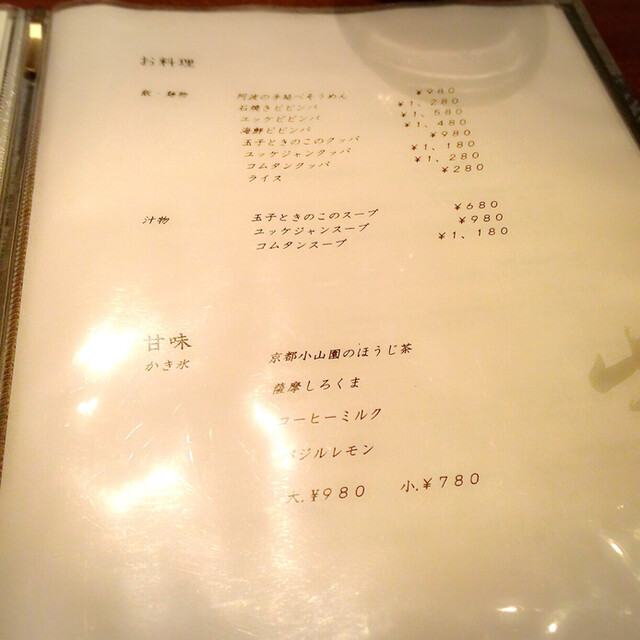 お料理
飯・麺物
阿波の手延べそうめん ¥980
石焼きビビンバ ¥1,280
ユッケビビンバ ¥1,580
海鮮ビビンバ ¥1,480
玉子ときのこのクッパ ¥980
ユッケジャンクッパ ¥1,180
コムタンクッパ ¥1,280
ライス ¥280
汁物
玉子ときのこのスープ ¥680
ユッケジャンスープ ¥980
コムタンスープ ¥1,180
甘味
かき氷
京都小山園のほうじ茶
薩摩しろくま
コーヒーミルク
バジルレモン
大.¥980 小.¥780